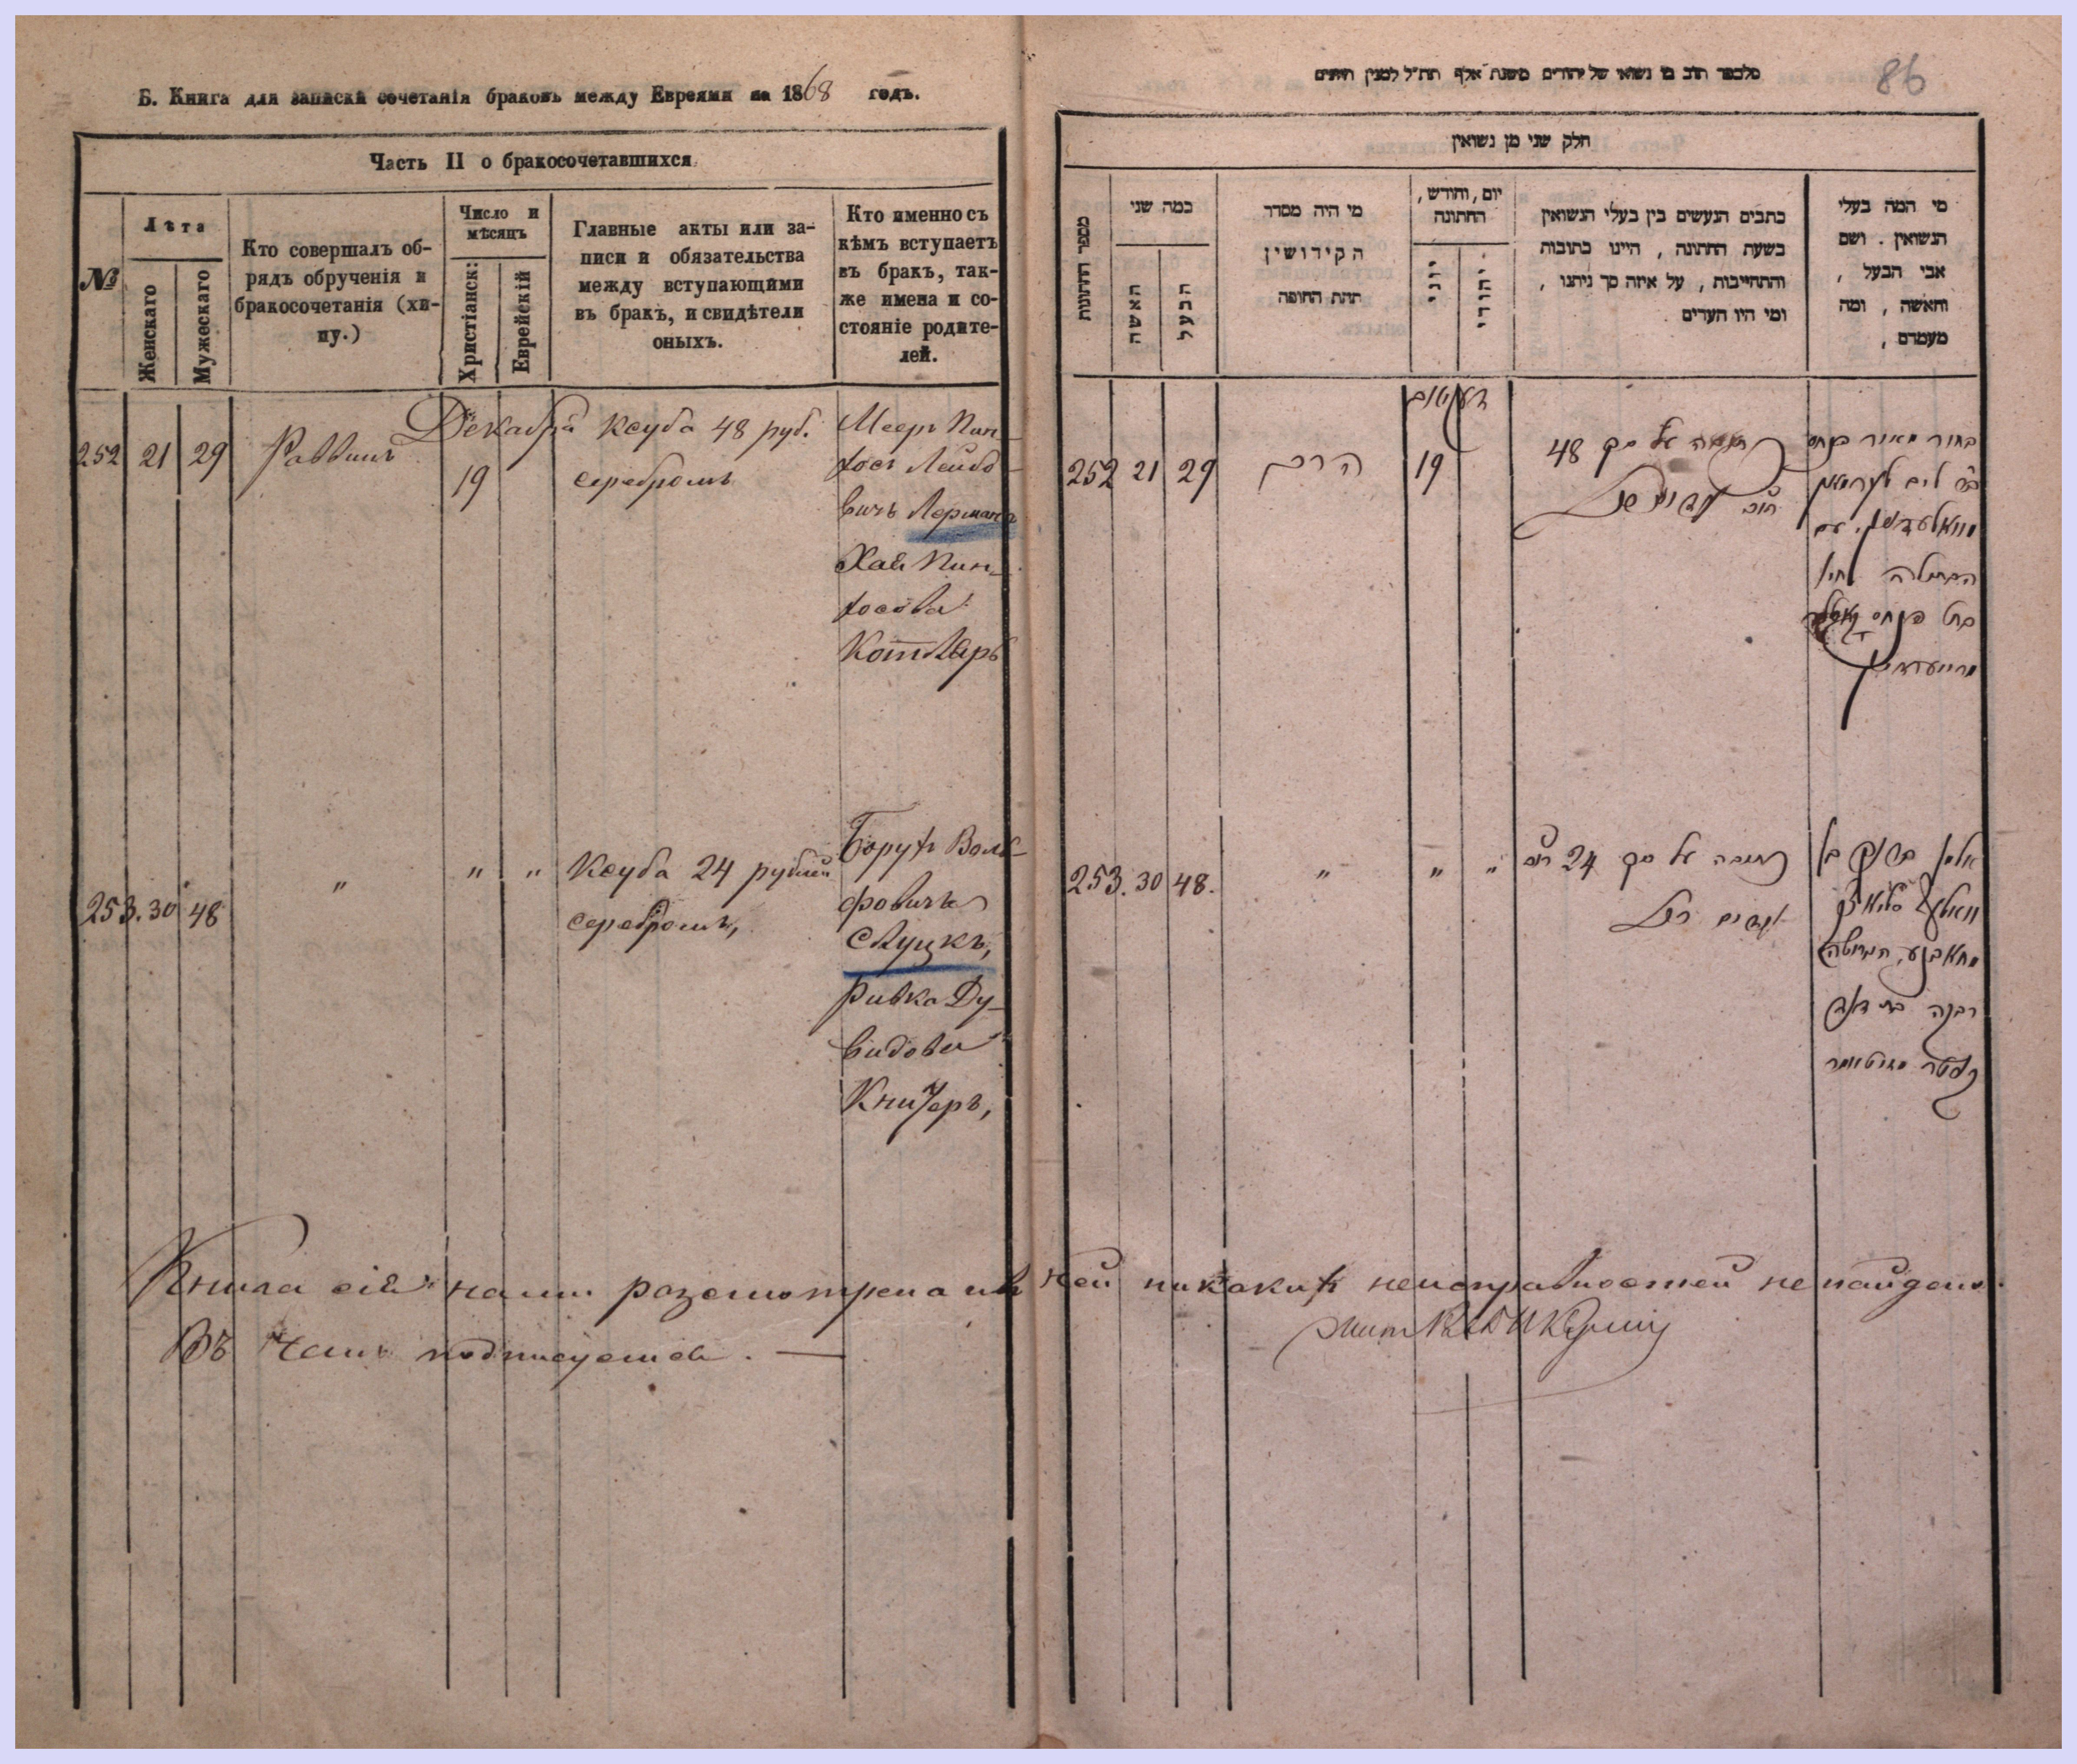 Б. Книга для записки сочетанія браковъ между Евреями на 1868 годъ.
Часть II о бракосочетавшихся
№
Лѣта
Женскаго
Мужескаго
Кто совершалъ об-
рядъ обрученія и
бракосочетанія (хи-
пу.)
Число и
мѣсяцъ
Христіанск:
Еврейскій
Главные акты или за-
писи и обязательства
между вступающими
въ бракъ, и свидѣтели
оныхъ.
Кто именно съ
кѣмъ вступаетъ
въ бракъ, так-
же имена и со-
стояніе родите-
лей.
252 21 29 Раввинъ
Декабря
19
Ксуба 48 руб.
серебромъ
Мееръ Пин-
хосъ Лейбо-
вичъ Лерманъ
Хая Пин-
хосова
Котляръ
253. 30 48 " " "
Ксуба 24 рублей
серебромъ,
Борухъ Воль-
фовичъ
Слуцкъ,
Ривка Ду-
видова
Книжеръ,
Книга сія нами разсмотрена и въ ней никакихъ неисправностей не найдено.
Въ чемъ подписуемся. —
86
חלק שני מן נשואין
מספר החתונות
כמה שני
האשה
הבעל
מי היה מסדר
הקידושין
תחת החופה
יום, וחודש,
החתונה
יווני
יהודי
כתבים הנעשים בין בעלי הנשואין
בשעת החתונה, היינו כתובות
והתחייבות, על איזה סך ניתנו,
ומי היו העדים
מי המה בעלי
הנשואין. ושם
אבי הבעל,
והאשה, ומה
מעמדם,
252 21 29 הרב
19
כתובה על סך 48
בחור מאיר פנחס
הבתולה חיה
בת פנחס
253. 30 48. " " "
כתובה על סך 24
אלמן ברוך בן
רבקה בת דוד